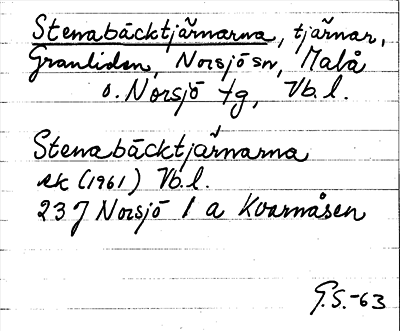 Stenabäcktjärnarna, tjärnar,
Granliden, Norsjö sn, Malå
o. Norsjö tg, Vb. l.
Stenabäcktjärnarna
ek (1961) Vb. l.
23 J Norsjö 1 a Kvarnåsen
G.S.-63